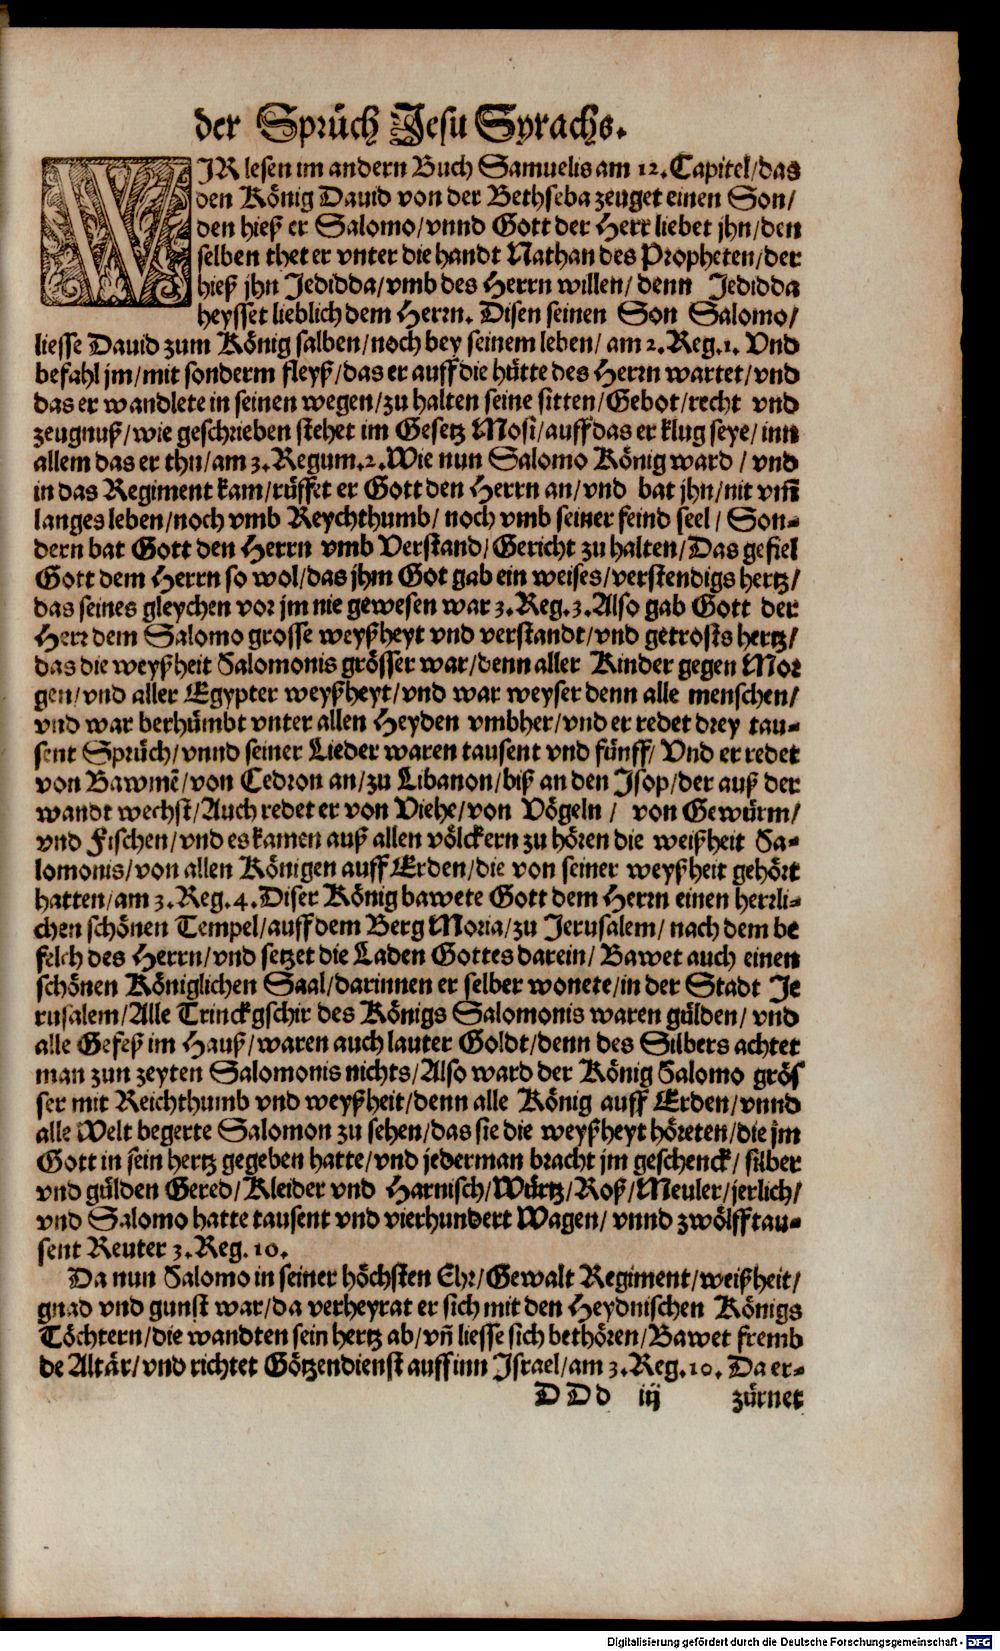 der Sprüch Jesu Syrachs.
WIR lesen im andern Buch Samuelis am 12. Capitel/das
den König Dauid von der Bethseba zeuget einen Son/
den hieß er Salomo/vnnd Gott der Herr liebet jhn/den
selben thet er vnter die handt Nathan des Propheten/der
hieß jhn Jedidda/vmb des Herrn willen/ denn Jedidda
heysset lieblich dem Herrn. Disen seinen Son Salomo/
liesse Dauid zum König salben/noch bey seinem leben/ am 2. Reg. 1. Vnd
befahl jm/mit sonderm fleyß/das er auff die hütte des Herrn wartet/vnd
das er wandlete in seinen wegen/zu halten seine sitten/Gebot/recht vnd
zeugnuß/wie geschrieben stehet im Gesetz Mosi/auff das er klug seye/inn
allem das er thu/am 3. Regum. 2. Wie nun Salomo König ward / vnd
in das Regiment kam/rüffet er Gott den Herrn an/vnd bat jhn/nit vm̄
langes leben/noch vmb Reychthumb/ noch vmb seiner feind seel/ Son-
dern bat Gott den Herrn vmb Verstand/Gericht zu halten/Das gefiel
Gott dem Herrn so wol/das jhm Got gab ein weises/verstendigs hertz/
das seines gleychen vor jm nie gewesen war 3. Reg. 3. Also gab Gott der
Herr dem Salomo grosse weyßheyt vnd verstandt/vnd getrosts hertz/
das die weyßheit Salomonis grösser war/denn aller Kinder gegen Mor
gen/vnd aller Egypter weyßheyt/vnd war weyser denn alle menschen/
vnd war berhümbt vnter allen Heyden vmbher/vnd er redet drey tau-
sent Sprüch/vnnd seiner Lieder waren tausent vnd fünff/ Vnd er redet
von Bawmē/von Cedron an/zu Libanon/biß an den Jsop/der auß der
wandt wechst/Auch redet er von Viehe/von Vögeln / von Gewürm/
vnd Fischen/vnd es kamen auß allen völckern zu hören die weißheit Sa-
lomonis/von allen Königen auff Erden/die von seiner weyßheit gehört
hatten/am 3. Reg. 4. Diser König bawete Gott dem Herrn einen herrli-
chen schönen Tempel/auff dem Berg Moria/zu Jerusalem/ nach dem be
felch des Herrn/vnd setzet die Laden Gottes darein/ Bawet auch einen
schönen Königlichen Saal/darinnen er selber wonete/in der Stadt Je
rusalem/Alle Trinckgschir des Königs Salomonis waren gülden/ vnd
alle Gefeß im Hauß/waren auch lauter Goldt/denn des Silbers achtet
man zun zeyten Salomonis nichts/Also ward der König Salomo grös
ser mit Reichthumb vnd weyßheit/denn alle König auff Erden/vnnd
alle Welt begerte Salomon zu sehen/das sie die weyßheyt höreten/die jm
Gott in sein hertz gegeben hatte/vnd jederman bracht jm geschenck/ silber
vnd gülden Gered/Kleider vnd Harnisch/Würtz/Roß/Meuler/jerlich/
vnd Salomo hatte tausent vnd vierhundert Wagen/ vnnd zwölff tau-
sent Reuter 3. Reg. 10.
Da nun Salomo in seiner höchsten Ehr/Gewalt Regiment/weißheit/
gnad vnd gunst war/da verheyrat er sich mit den Heydnischen Königs
Töchtern/die wandten sein hertz ab/vn̄ liesse sich bethören/Bawet fremb
de Altär/vnd richtet Götzendienst auff inn Jsrael/am 3. Reg. 10. Da er-
DDd iij zürnet
Digitalisierung gefördert durch die Deutsche Forschungsgemeinschaft - DFG